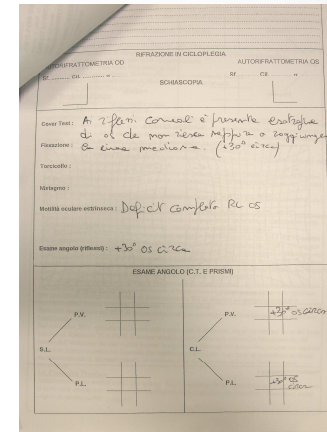 RIFRAZIONE IN CICLOPLEGIA
AUTORIFRATTOMETRIA OD AUTORIFRATTOMETRIA OS
Sf. ........ Cil. ............ Sf. ........ Cil ............
SCHIASCOPIA
Cover Test : Ai riflessi corneali è presente esotropia
di OS che non riesce neppure a raggiungere
Fissazione : la linea mediana. (+30° circa)
Torcicollo :
Nistagmo :
Motilità oculare estrinseca : Deficit completo RL OS
Esame angolo (riflessi) : +30° OS circa
ESAME ANGOLO (C.T. E PRISMI)
P.V. P.V. +30° OS circa
S.L. C.L.
P.L. P.L. +30° OS
circa